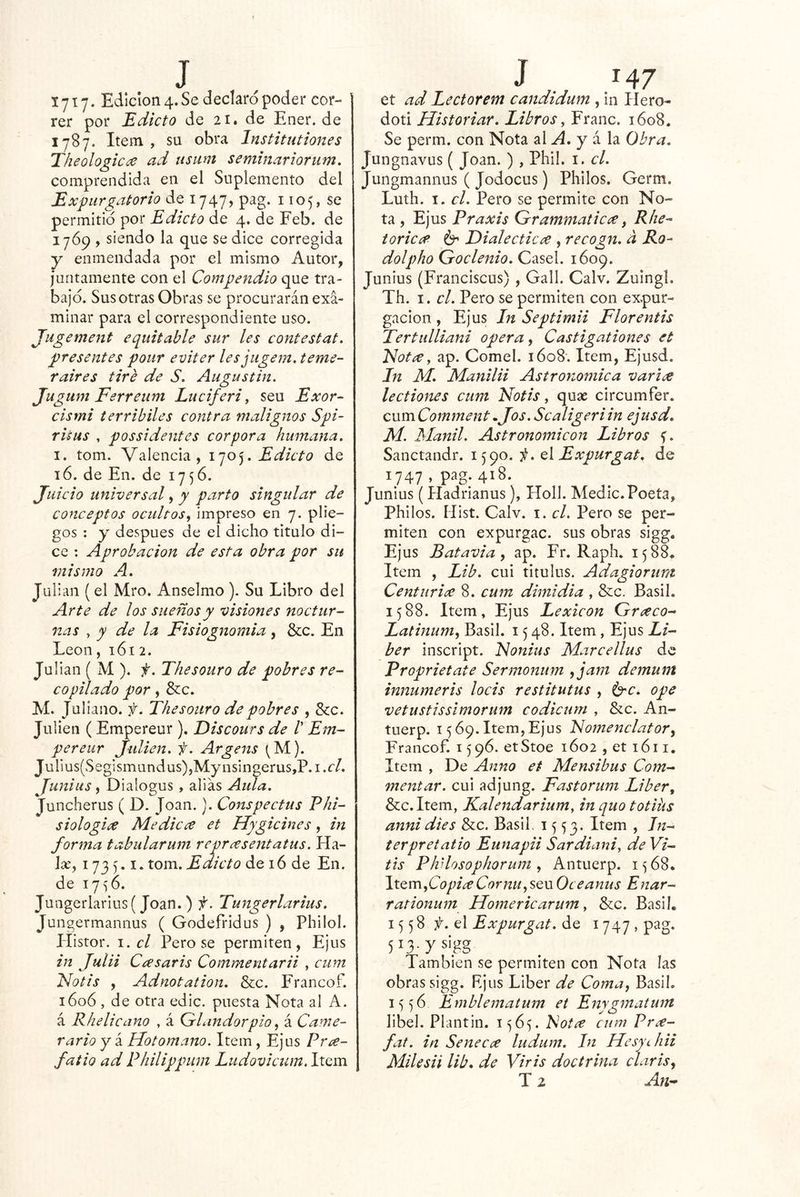 J
1717. Edicion 4. Se declaró poder cor-
rer por Edicto de 21. de Ener. de
1787. Item , su obra Institutiones
Theologicæ ad usum seminariorum.
comprendida en el Suplemento del
Expurgatorio de 1747, pag. 1105, se
permitió por Edicto de 4. de Feb. de
1769 , siendo la que se dice corregida
y enmendada por el mismo Autor,
juntamente con el Compendio que tra-
bajó. Sus otras Obras se procurarán exâ-
minar para el correspondiente uso.
Jugement equitable sur les contestat.
presentes pour eviter les jugem. teme-
raires tirè de S. Augustin.
Jugum Ferreum Luciferi, seu Exor-
cismi terribiles contra malignos Spi-
ritus , possidentes corpora humana.
1. tom. Valencia , 1705. Edicto de
16. de En. de 1756.
Juicio universal, y parto singular de
conceptos ocultos, impreso en 7. plie-
gos : y despues de el dicho titulo di-
ce : Aprobacion de esta obra por su
mismo A.
Julian ( el Mro. Anselmo ). Su Libro del
Arte de los sueños y visiones noctur-
nas , y de la Fisiognomia , &c. En
Leon, 1612.
Julian ( M ). ℣. Thesouro de pobres re-
copilado por , &c.
M. Juliano. ℣. Thesouro de pobres , &c.
Julien ( Empereur ). Discours de l' Em-
pereur Julien. ℣. Argens (M).
Julius(Segismundus),Mynsingerus,P.1.cl.
Junius , Dialogus , aliàs Aula.
Juncherus ( D. Joan. ). Conspectus Phi-
siologiæ Medicæ et Hygicines , in
forma tabularum repræsentatus. Ha-
læ, 1735. 1. tom. Edicto de 16 de En.
de 1756.
Jungerlarius ( Joan. ) ℣. Tungerlarius.
Jungermannus ( Godefridus ) , Philol.
Histor. 1. cl Pero se permiten , Ejus
in Julii Cæsaris Commentarii , cum
Notis , Adnotation. &c. Francof.
1606 , de otra edic. puesta Nota al A.
á Rhelicano , á Glandorpio, á Came-
rario y á Hotomano. Item , Ejus Præ-
fatio ad Philippum Ludovicum. Item
J 147
et ad Lectorem candidum , in Hero-
doti Historiar. Libros, Franc. 1608.
Se perm. con Nota al A. y á la Obra.
Jungnavus ( Joan. ) , Phil. 1. cl.
Jungmannus ( Jodocus ) Philos. Germ.
Luth. 1. cl. Pero se permite con No-
ta , Ejus Praxis Grammaticæ, Rhe-
toricæ & Dialecticæ , recogn. à Ro-
dolpho Goclenio. Casel. 1609.
Junius (Franciscus) , Gall. Calv. Zuingl.
Th. 1. cl. Pero se permiten con expur-
gacion , Ejus In Septimii Florentis
Tertulliani opera, Castigationes et
Notæ, ap. Comel. 1608. Item, Ejusd.
In M. Manilii Astronomica variæ
lectiones cum Notis , quæ circumfer.
cum Comment. Jos. Scaligeri in ejusd.
M. Manil. Astronomicon Libros 5.
Sanctandr. 1590. ℣. el Expurgat. de
1747 , pag. 418.
Junius ( Hadrianus ), Holl. Medic.Poeta,
Philos. Hist. Calv. 1. cl. Pero se per-
miten con expurgac. sus obras sigg.
Ejus Batavia , ap. Fr. Raph. 1588.
Item , Lib. cui titulus. Adagiorum
Centuriæ 8. cum dimidia , &c. Basil.
1588. Item, Ejus Lexicon Græco-
Latinum, Basil. 1548. Item , Ejus Li-
ber inscript. Nonius Marcellus de
Proprietate Sermonum , jam demum
innumeris locis restitutus , &c. ope
vetustissimorum codicum , &c. An-
tuerp. 1569. Item, Ejus Nomenclator,
Francof. 1596. et Stoe 1602 , et 1611.
Item , De Anno et Mensibus Com-
mentar. cui adjung. Fastorum Liber,
&c. Item, Kalendarium, in quo totiùs
anni dies &c. Basil. 1553. Item , In-
terpretatio Eunapii Sardiani, de Vi-
tis Philosophorum , Antuerp. 1568.
Item ,Copiæ Cornu, seu Oceanus Enar-
rationum Homericarum, &c. Basil.
1558 ℣. el Expurgat. de 1747 , pag.
513. y sigg
Tambien se permiten con Nota las
obras sigg. Ejus Liber de Coma, Basil.
1556 Emblematum et Enygmatum
libel. Plantin. 1565. Notæ cum Præ-
fat. in Senecæ ludum. In Hesychii
Milesii lib. de Viris doctrina claris,
T 2 An-